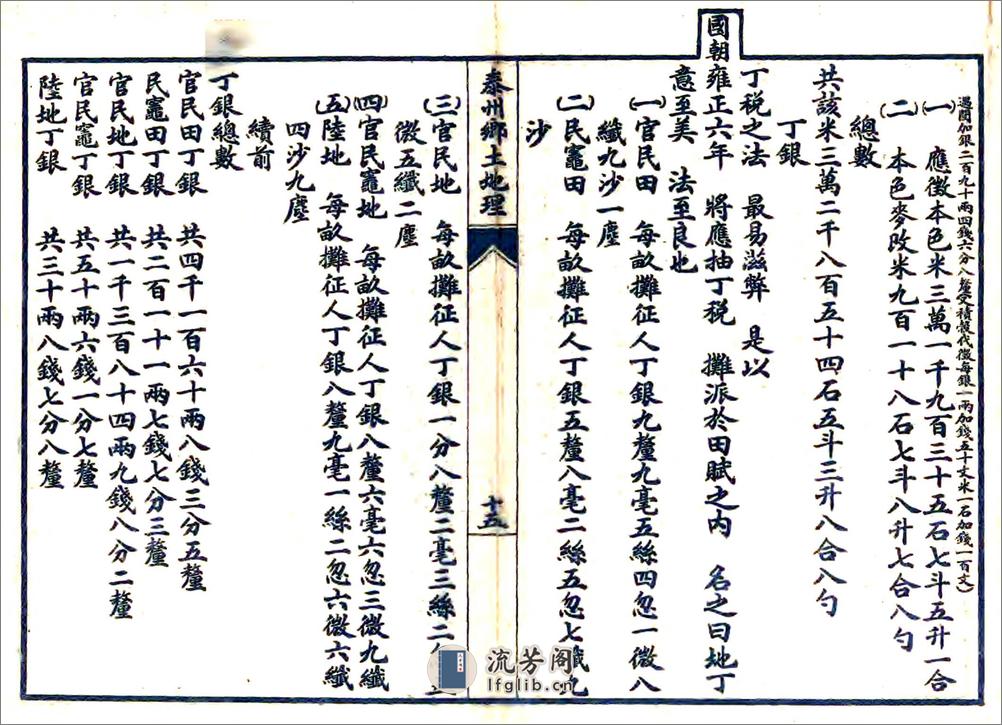 遇閏加銀二百九十兩四錢六分八釐又積穀代徵每銀一兩加錢五十文米一石加錢一百文)
(一) 應徵本色米三萬一千九百三十五石七斗五升一合
(二) 本色麥改米九百一十八石七斗八升七合八勺
總數
共該米三萬二千八百五十四石五斗三升八合八勺
丁銀
丁稅之法 最易滋弊 是以
國朝雍正六年 將應抽丁稅 攤派於田賦之內 名之曰地丁
意至美 法至良也
(一)官民田 每畝攤征人丁銀九釐九毫五絲四忽一微八
纖九沙一塵
(二)民竈田 每畝攤征人丁銀五釐八毫二絲五忽七纖九
沙
泰州鄉土地理
十五
(三)官民地 每畝攤征人丁銀一分八釐二毫三絲二
微五纖二塵
(四)官民竈地 每畝攤征人丁銀八釐六毫六忽三微九纖
(五)陸地 每畝攤征人丁銀八釐九毫一絲二忽六微六纖
四沙九塵
續前
丁銀總數
官民田丁銀 共四千一百六十兩八錢三分五釐
民竈田丁銀 共二百一十一兩七錢七分三釐
官民地丁銀 共一千三百八十四兩九錢八分二釐
官民竈丁銀 共五十兩六錢一分七釐
陸地丁銀 共三十兩八錢七分八釐
流芳阁
lfglib.cn